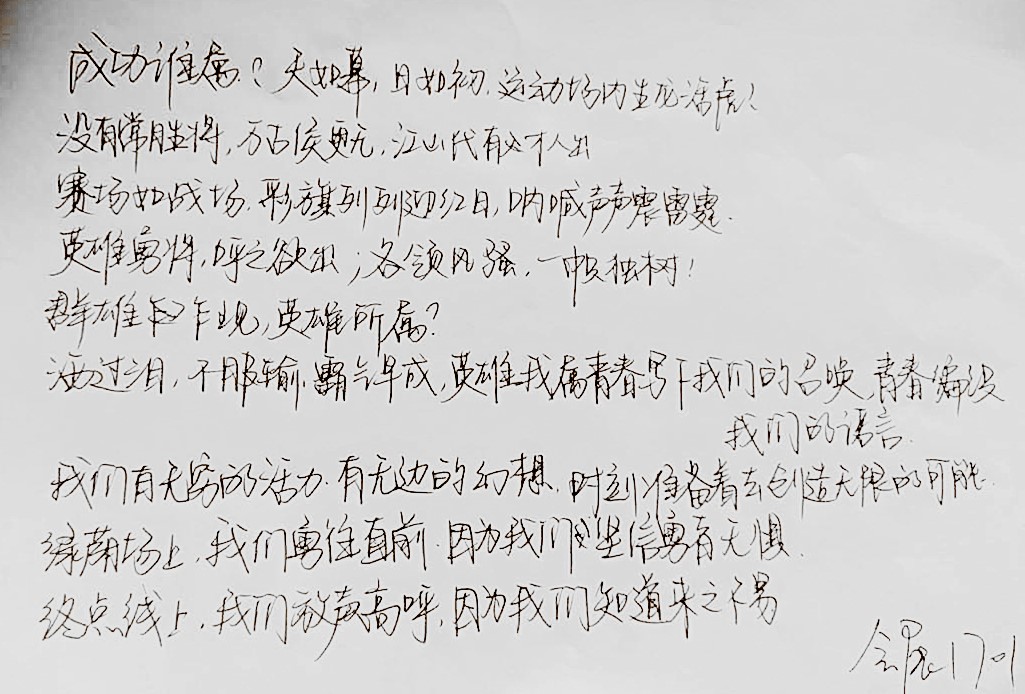 成功谁属？天如幕，日如初，运动场内生龙活虎！
没有常胜将，万古侯更无，江山代有必才人出
赛场如战场，彩旗列列迎红日，呐喊声声震雷霆.
英雄勇将，呼之欲出；各领风骚，一帜独树！
群雄乍现，英雄所属？
洒过泪，不服输，霸气早成，英雄我属青春写下我们的召唤，青春编织
我们的语言.
我们有无穷的活力，有无边的幻想，时刻准备着去创造无限的可能.
绿茵场上，我们勇往直前，因为我们坚信勇者无惧.
终点线上，我们放声高呼，因为我们知道来之不易
会展1701